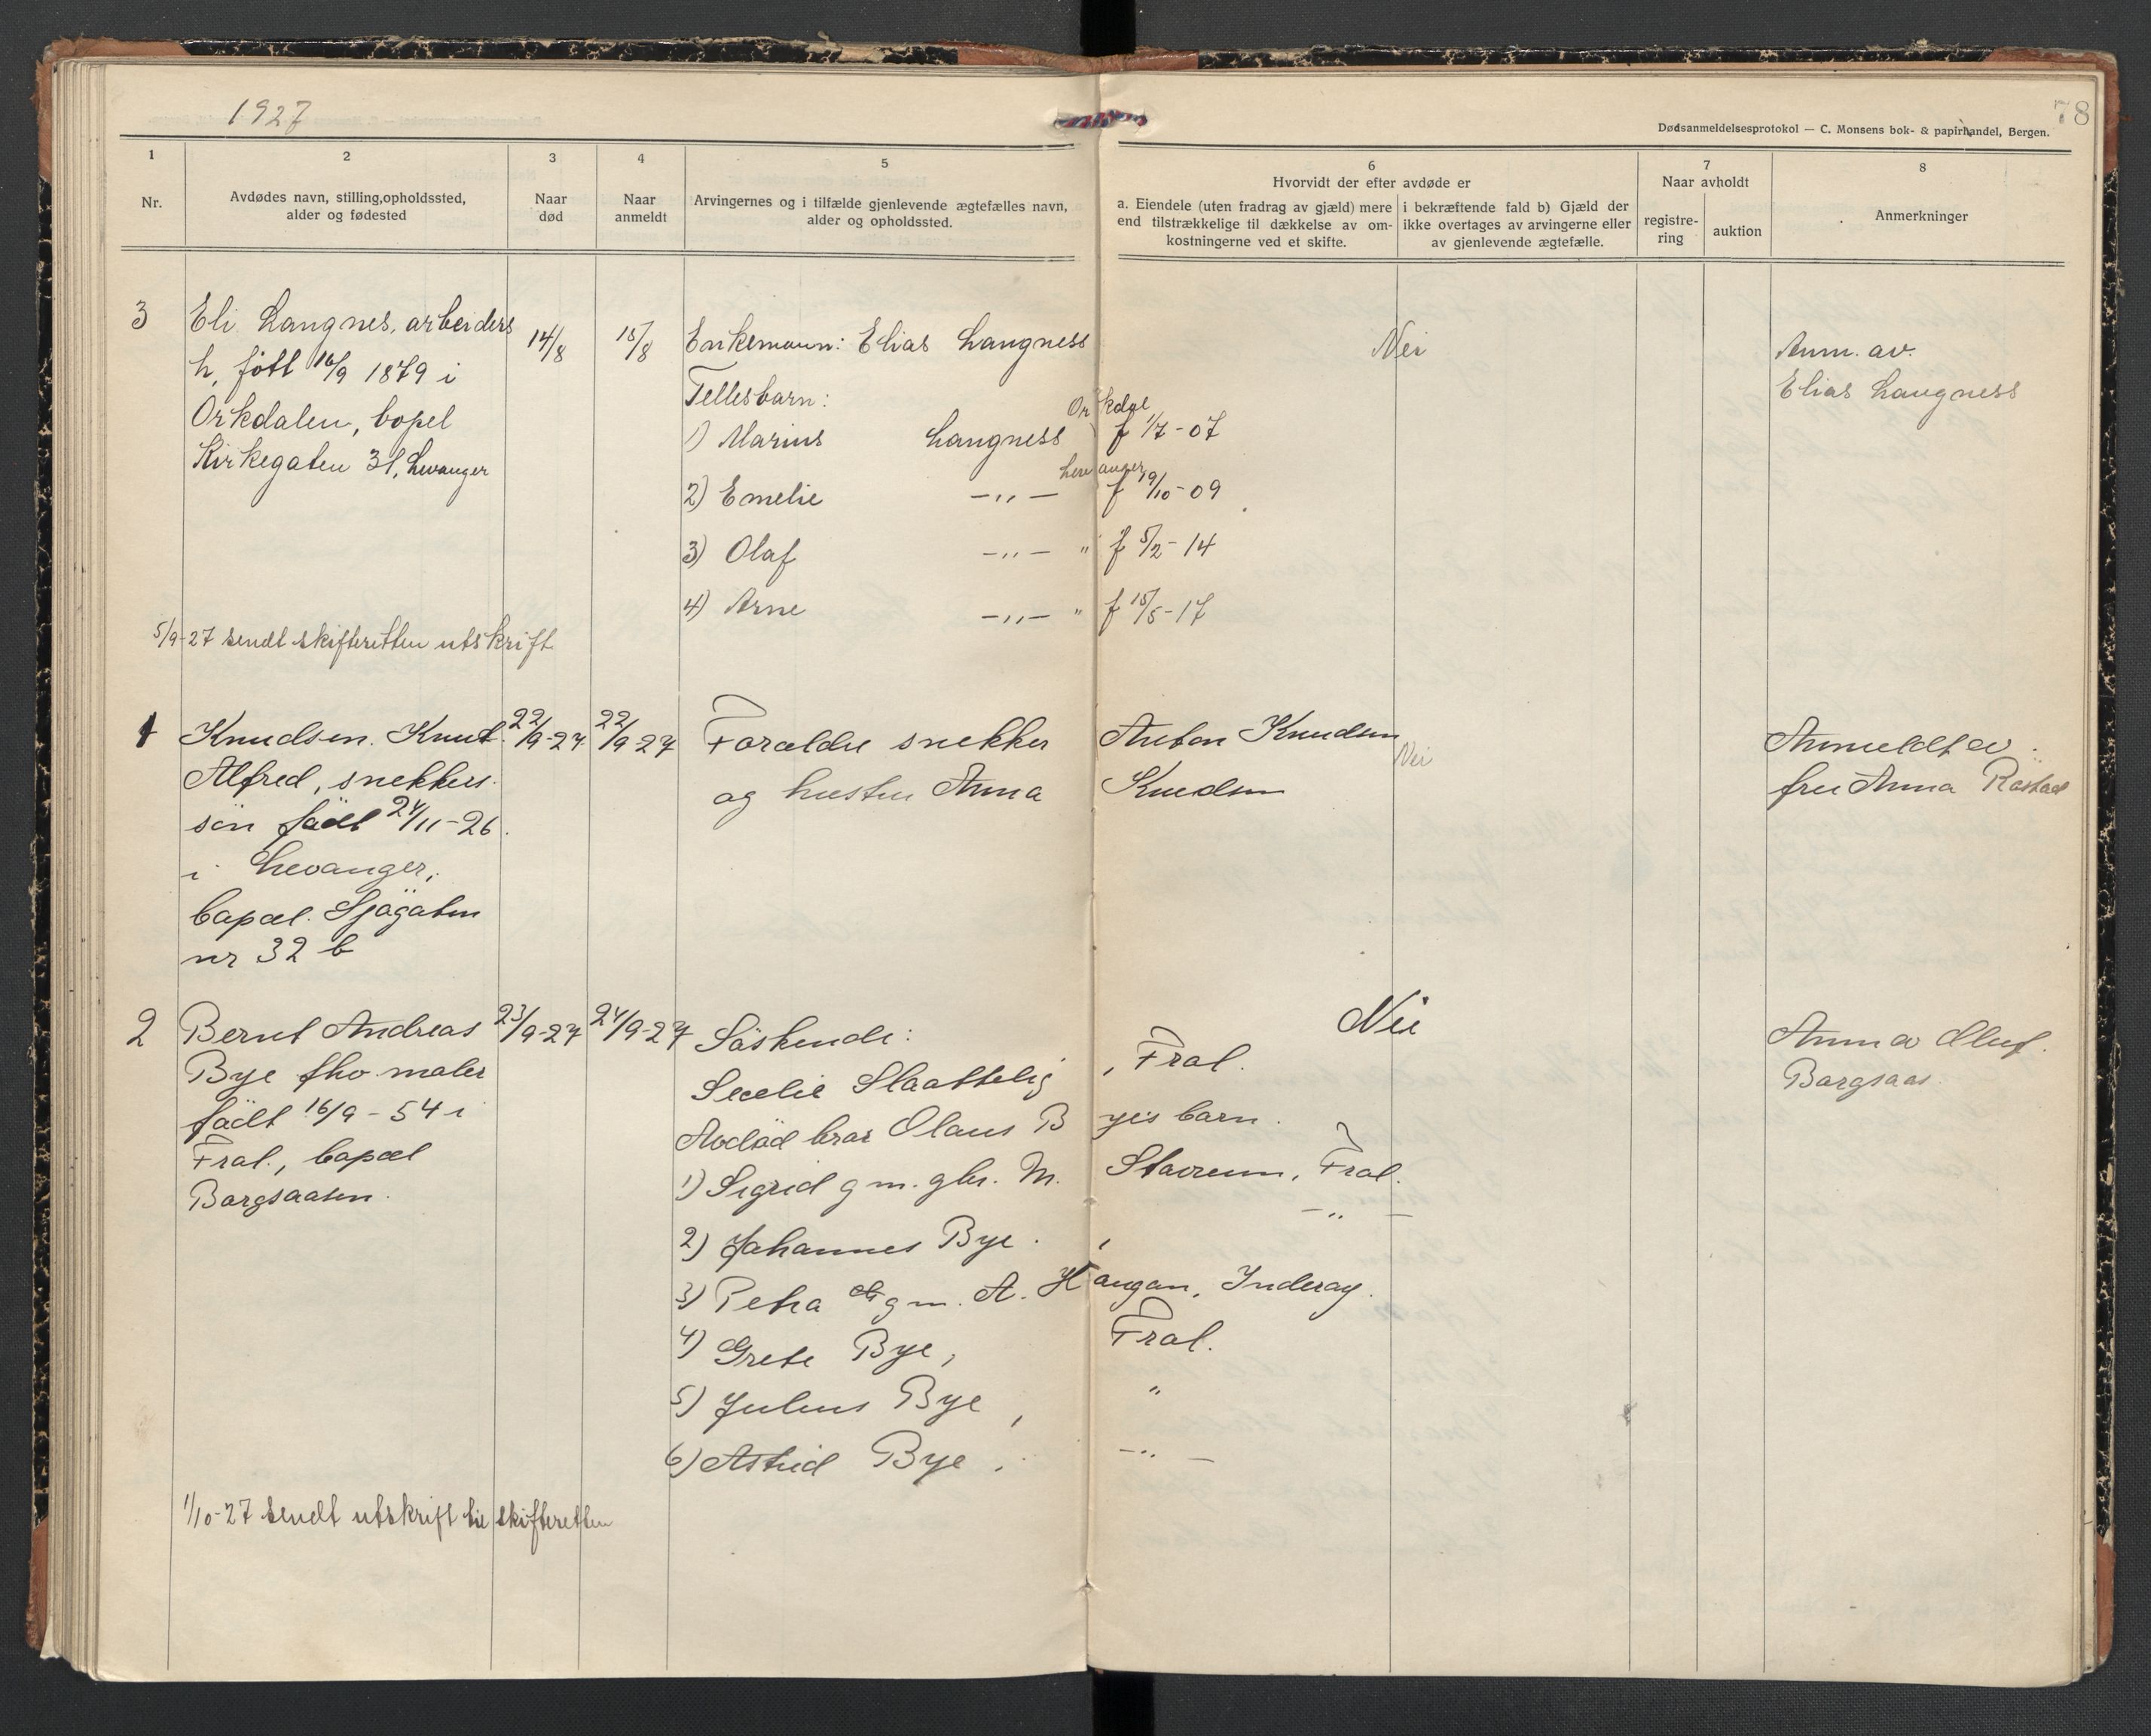 1927
78
Dødsanmeldelsesprotokol — C. Monsens bok- & papirhandel, Bergen.
1
2
3
4
5
6
7
8
Nr.
Avdødes navn, stilling, opholdssted,
alder og fødested
Naar
død
Naar
anmeldt
Arvingernes og i tilfælde gjenlevende ægtefælles navn,
alder og opholdssted.
Hvorvidt der efter avdøde er
a. Eiendele (uten fradrag av gjæld) mere
end tilstrækkelige til dækkelse av om-
kostningerne ved et skifte.
i bekræftende fald b) Gjæld der
ikke overtages av arvingerne eller
av gjenlevende ægtefælle.
Naar avholdt
registre-
ring
auktion
Anmerkninger
3
Eli Langnes, arbeiders
h, født 16/9 1879 i
Orkdalen, bopel
Kirkegaten 31, Levanger
14/8
15/8
Enkemann: Elias Langness
Fellesbarn:
Orkdal
1) Marius Langness f 1/7-07
Levanger
2) Emelie -„- f 19/10-09
3) Olaf -„- " f 5/2-14
4) Arne -„- " f 15/5-17
Nei
Anm. av.
Elias Langness
5/9-27 sendt skifteretten utskrift
1
Knudsen. Knut
Alfred, snekkers
søn født 24/11-26.
i Levanger,
bopæl. Sjøgaten
nr 32 b
22/9-27
22/9-27
Forældre snekker Anton Knudsen
og hustru Anna Knudsen
Nei
Anmeldt av
fru Anna Røstad
2
Bernt Andreas
Bye fhv maler
født 16/9-54 i
Frol., bopæl
Borgsaasen.
23/9-27
24/9-27
Søskende:
Secelie Slaattelig, Frol.
Avdød bror Olaus Byes barn.
1) Sigrid g m. gbr. M. Stavrum, Frol.
2) Johannes Bye. , -„-
3) Petra g m. A. Haugan, Inderøy.
4) Grete Bye, Frol.
5) Julius Bye, "
6) Astrid Bye, -„-
Nei
Anm av Oluf.
Borgsaas.
1/10-27 sendt utskrift til skifteretten